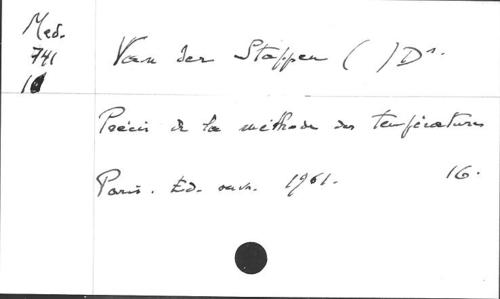 Med.
741
Van der Stappen ( ) Dr.
Précis de la méthode des températures
Paris. Ed. ouvr. 1961. 16.